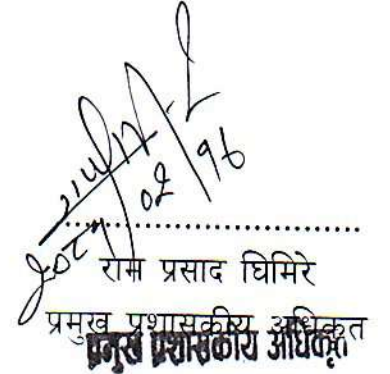 ०२ १६
राम प्रसाद घिमिरे
प्रमुख प्रशासकीय अधिकृत
प्रमुख प्रशासकीय अधिकृत